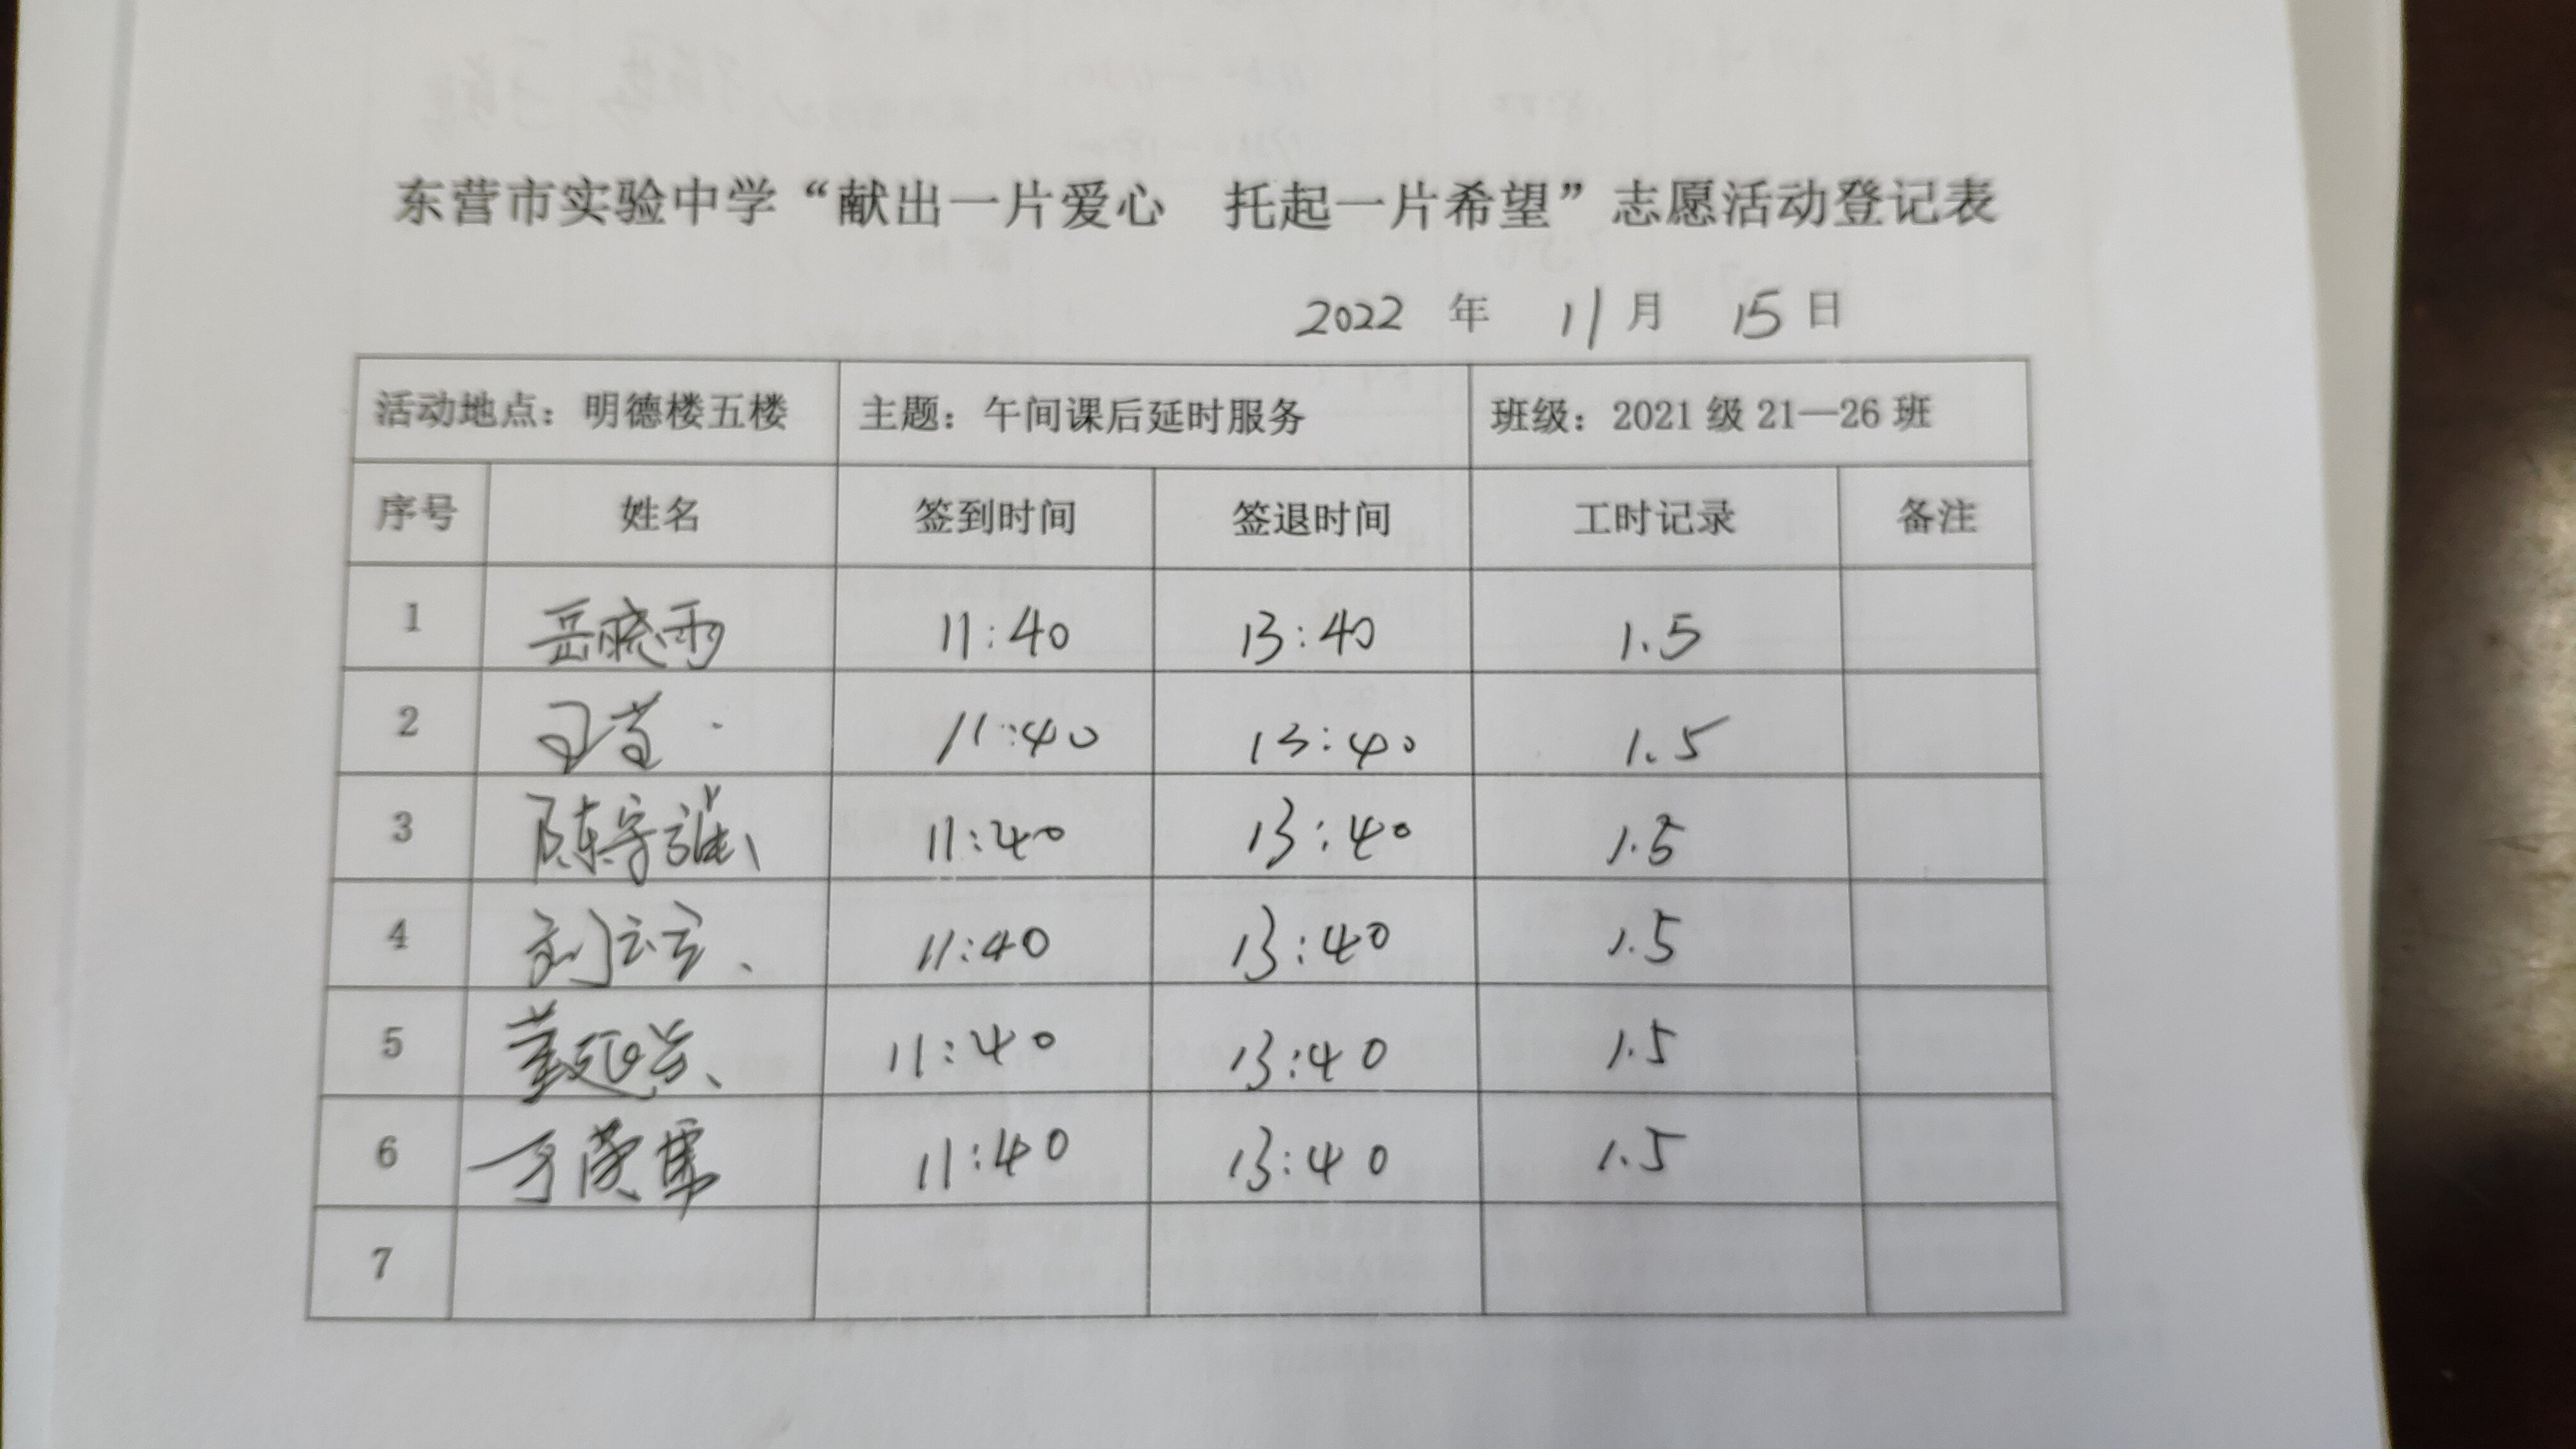 东营市实验中学“献出一片爱心 托起一片希望”志愿活动登记表
2022 年 11 月 15 日
活动地点：明德楼五楼 主题：午间课后延时服务 班级：2021 级 21—26 班
序号 姓名 签到时间 签退时间 工时记录 备注
1 岳晓雨 11:40 13:40 1.5
2 11:40 13:40 1.5
3 陈守 11:40 13:40 1.5
4 刘 11:40 13:40 1.5
5 董延 11:40 13:40 1.5
6 于荣军 11:40 13:40 1.5
7